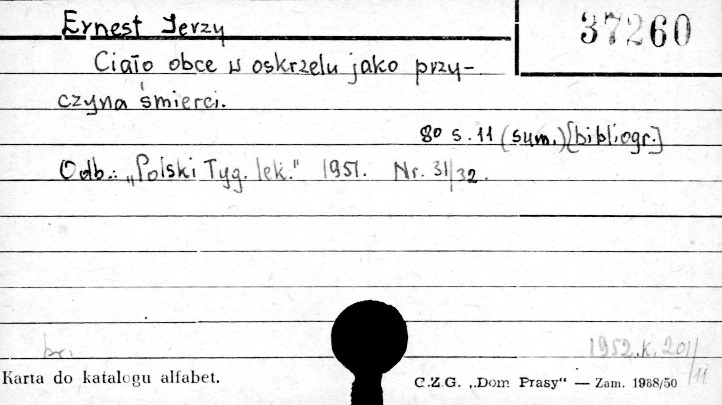 Ernest Jerzy
37260
Ciało obce w oskrzelu jako przy-
czyna śmierci.
80 s. 11 (sum.) [bibliogr.]
Odb.: „Polski Tyg. lek." 1951. Nr. 31/32.
br.
1952.K.201/11
Karta do katalogu alfabet.
C.Z.G. „Dom Prasy“ — Zam. 1988/50